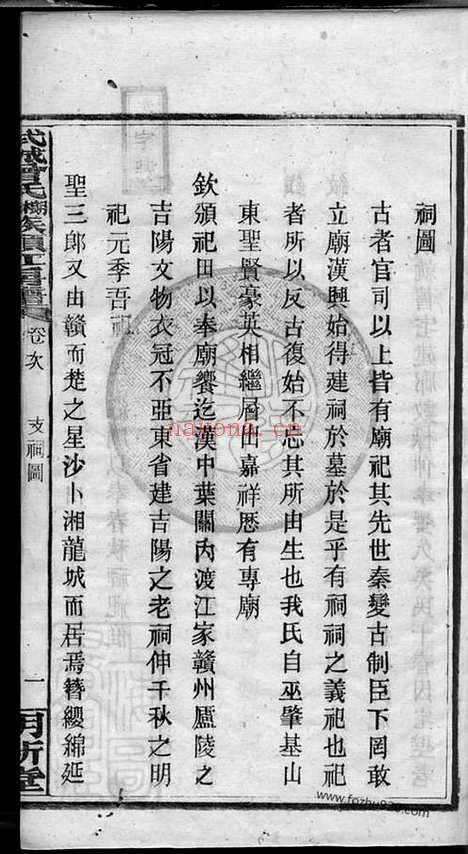 祠圖
古者官司以上皆有廟祀其先世秦變古制臣下罔敢
立廟漢興始得建祠於墓於是乎有祠祠之義祀也祀
者所以反古復始不忘其所由生也我氏自巫肇基山
東聖賢豪英相繼屆出嘉祥厯有專廟
欽頒祀田以奉廟饗迄漢中葉關內渡江家贛州廬陵之
吉陽文物衣冠不亞東省建吉陽之老祠伸千秋之明
祀元季吾祀
聖三郎又由贛而楚之星沙卜湘龍城而居焉簪纓綿延
武城曾氏
卷次
支祠圖
一
hayona.com
www.fozhu920.com